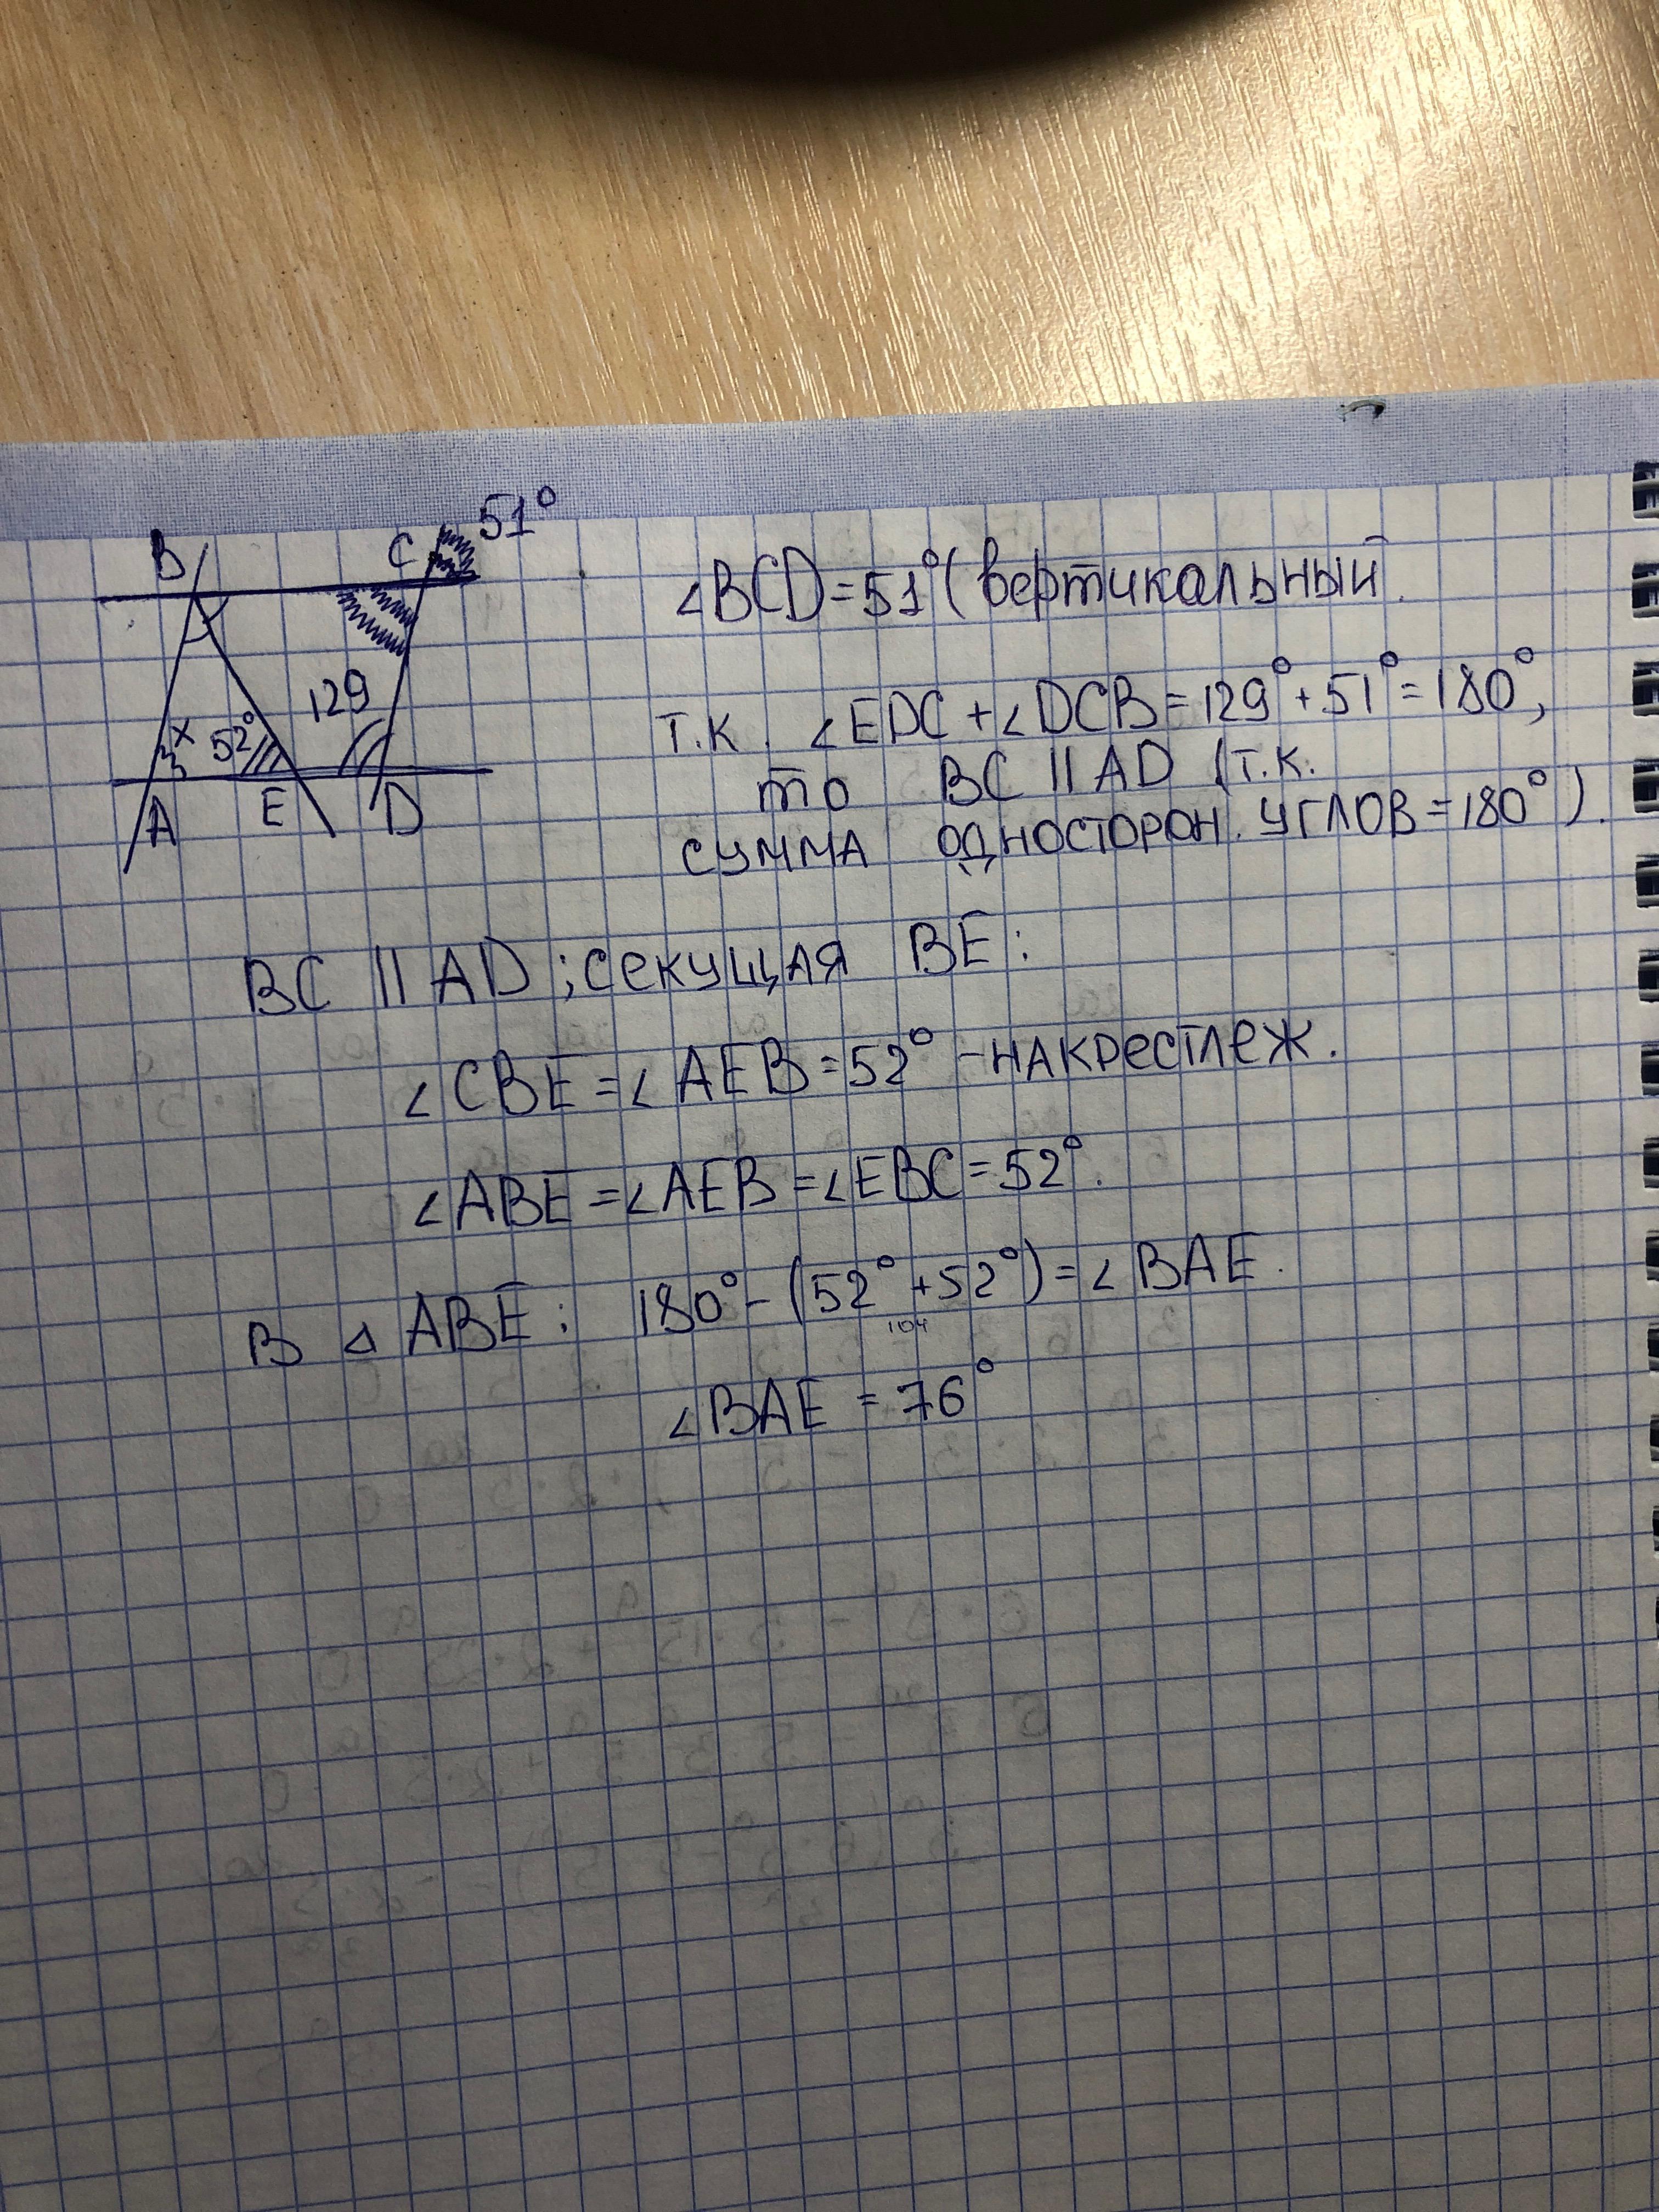 B C 51°
x 52° 129
A E D
∠BCD=51°(вертикальный.
т.к. ∠EDC+∠DCB=129°+51°=180°,
то BC || AD (т.к.
сумма односторон. углов=180°).
BC || AD; секущая BE:
∠CBE=∠AEB=52° -накрестлеж.
∠ABE=∠AEB=∠EBC=52°.
В △ ABE: 180°-(52°+52°)=∠BAE.
104
∠BAE = 76°